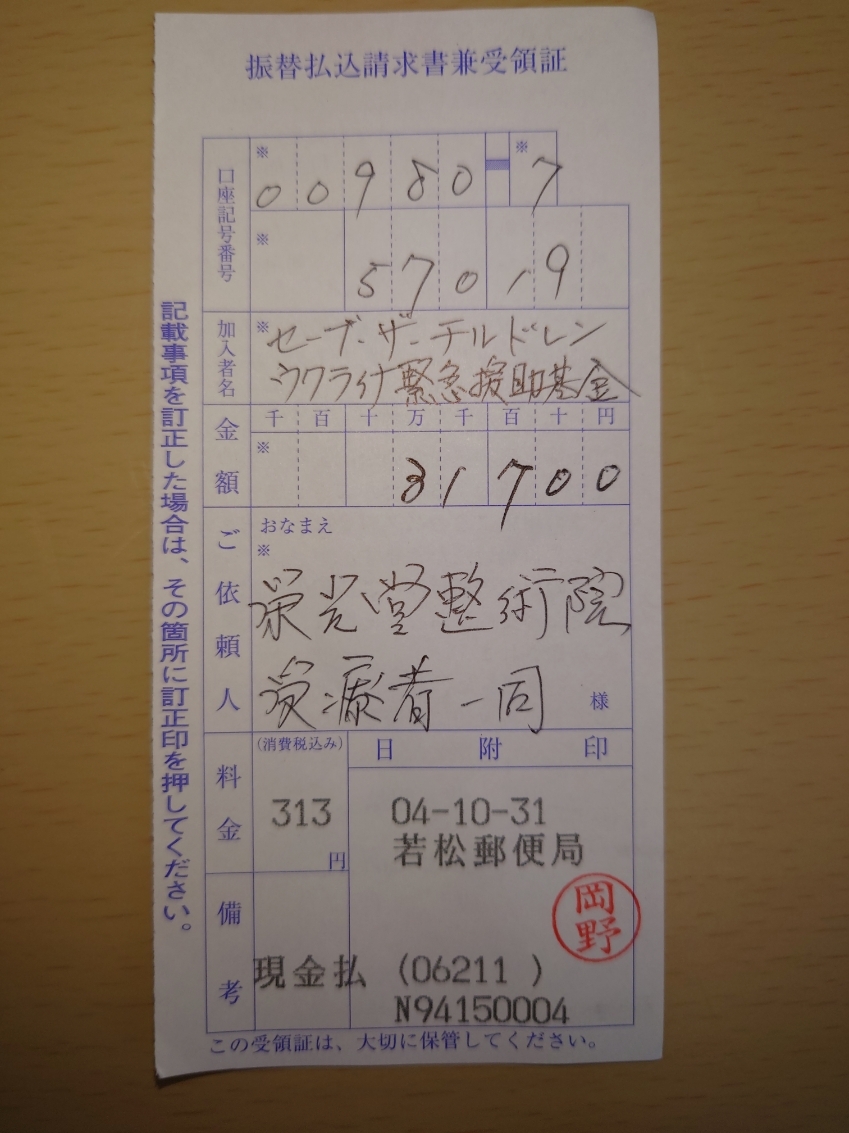 振替払込請求書兼受領証
口座記号番号
※ ※
00980-7
※
57019
加入者名
※セーブ・ザ・チルドレン
ウクライナ緊急援助基金
金額
千百十万千百十円
※
31700
ご依頼人
おなまえ
※
栄光堂整術院
療者一同 様
料金
(消費税込み)
313
円
日附印
04-10-31
若松郵便局
岡野
備考
現金払 (06211 )
N94150004
この受領証は、大切に保管してください。
記載事項を訂正した場合は、その箇所に訂正印を押してください。